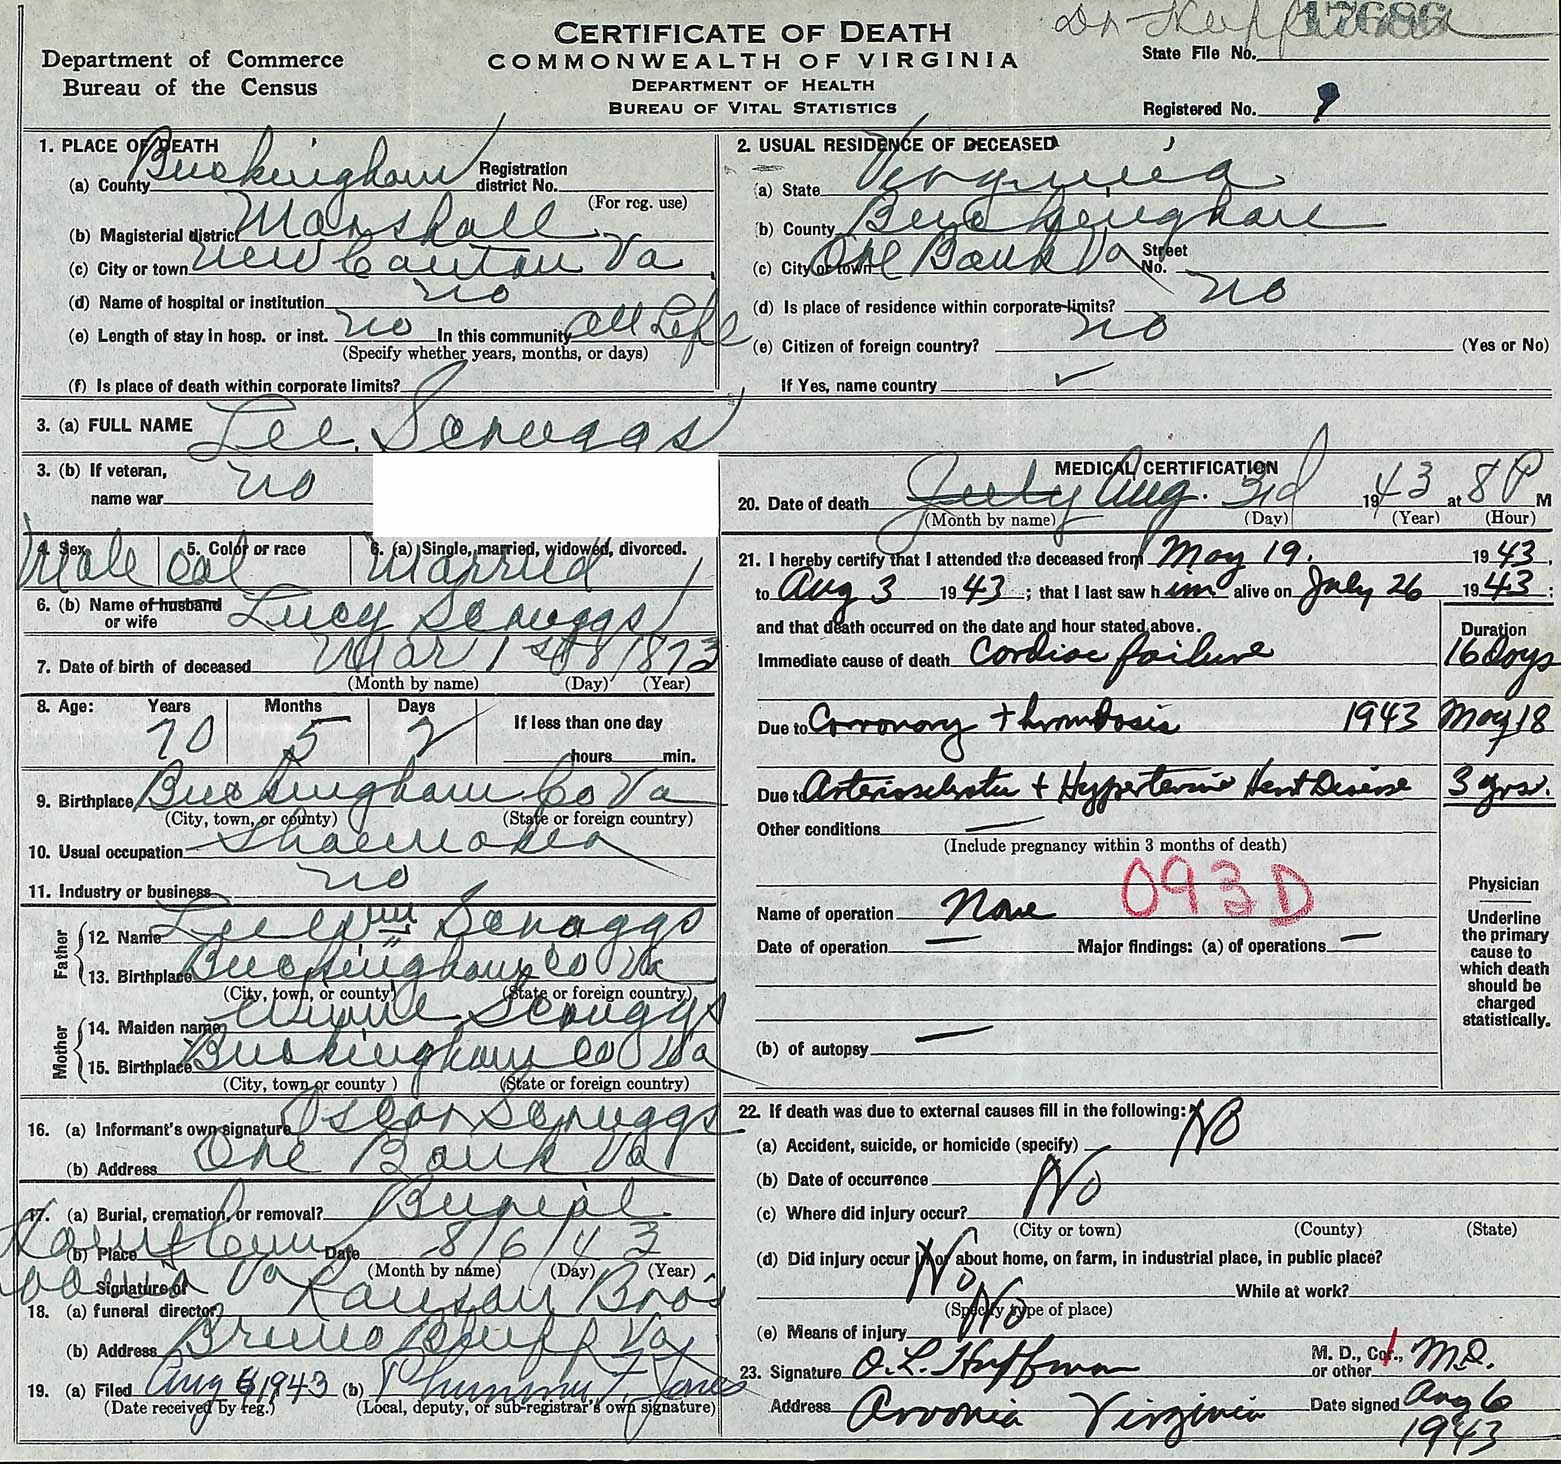 Department of Commerce
Bureau of the Census
CERTIFICATE OF DEATH
COMMONWEALTH OF VIRGINIA
DEPARTMENT OF HEALTH
BUREAU OF VITAL STATISTICS
State File No.
Registered No. 9
1. PLACE OF DEATH
(a) County Buckingham Registration district No.
(For reg. use)
(b) Magisterial district Marshall
(c) City or town New Canton Va
(d) Name of hospital or institution no
(e) Length of stay in hosp. or inst. no In this community all Life
(Specify whether years, months, or days)
(f) Is place of death within corporate limits?
2. USUAL RESIDENCE OF DECEASED
(a) State Virginia
(b) County Buckingham
(c) City or town Ore Bank Va Street No.
(d) Is place of residence within corporate limits? no
(e) Citizen of foreign country? no (Yes or No)
If Yes, name country
3. (a) FULL NAME Lee Scruggs
3. (b) If veteran, name war no
4. Sex Male 5. Color or race Col 6. (a) Single, married, widowed, divorced. Married
6. (b) Name of husband or wife Lucy Scruggs
7. Date of birth of deceased Mar 1st 1873
(Month by name) (Day) (Year)
8. Age: Years Months Days If less than one day
70 5 2 hours min.
9. Birthplace Buckingham Co Va
(City, town, or county) (State or foreign country)
10. Usual occupation Shoemaker
11. Industry or business no
Father
12. Name Scruggs
13. Birthplace Buckingham Co Va
(City, town, or county) (State or foreign country)
Mother
14. Maiden name Scruggs
15. Birthplace Buckingham Co Va
(City, town or county ) (State or foreign country)
16. (a) Informant's own signature Oscar Scruggs
(b) Address Ore Bank Va
17. (a) Burial, cremation, or removal? Burial
(b) Place Va Date 8/6/43
(Month by name) (Day) (Year)
18. Signature of (a) funeral director Ranson Bros
(b) Address Bremo Bluff Va
19. (a) Filed Aug 6 1943 (b) Plummer F. Jones
(Date received by reg.) (Local, deputy, or sub-registrar's own signature)
MEDICAL CERTIFICATION
20. Date of death July Aug. 3d 1943 at 8 P M
(Month by name) (Day) (Year) (Hour)
21. I hereby certify that I attended the deceased from May 19. 1943,
to Aug 3 1943; that I last saw him alive on July 26 1943;
and that death occurred on the date and hour stated above. Duration
Immediate cause of death Cardiac failure 16 Days
Due to Coronary thrombosis 1943 May 18
Due to Arteriosclerotic + Hypertensive Heart Disease 3 yrs.
Other conditions —
(Include pregnancy within 3 months of death)
093D
Name of operation None
Date of operation — Major findings: (a) of operations —
(b) of autopsy —
Physician
Underline the primary cause to which death should be charged statistically.
22. If death was due to external causes fill in the following:
(a) Accident, suicide, or homicide (specify) No
(b) Date of occurrence
(c) Where did injury occur? No
(City or town) (County) (State)
(d) Did injury occur in or about home, on farm, in industrial place, in public place?
No While at work?
(Specify type of place)
(e) Means of injury No
23. Signature O. L. Huffman M. D., Cor., or other M.D.
Address Arvonia Virginia Date signed Aug 6
1943